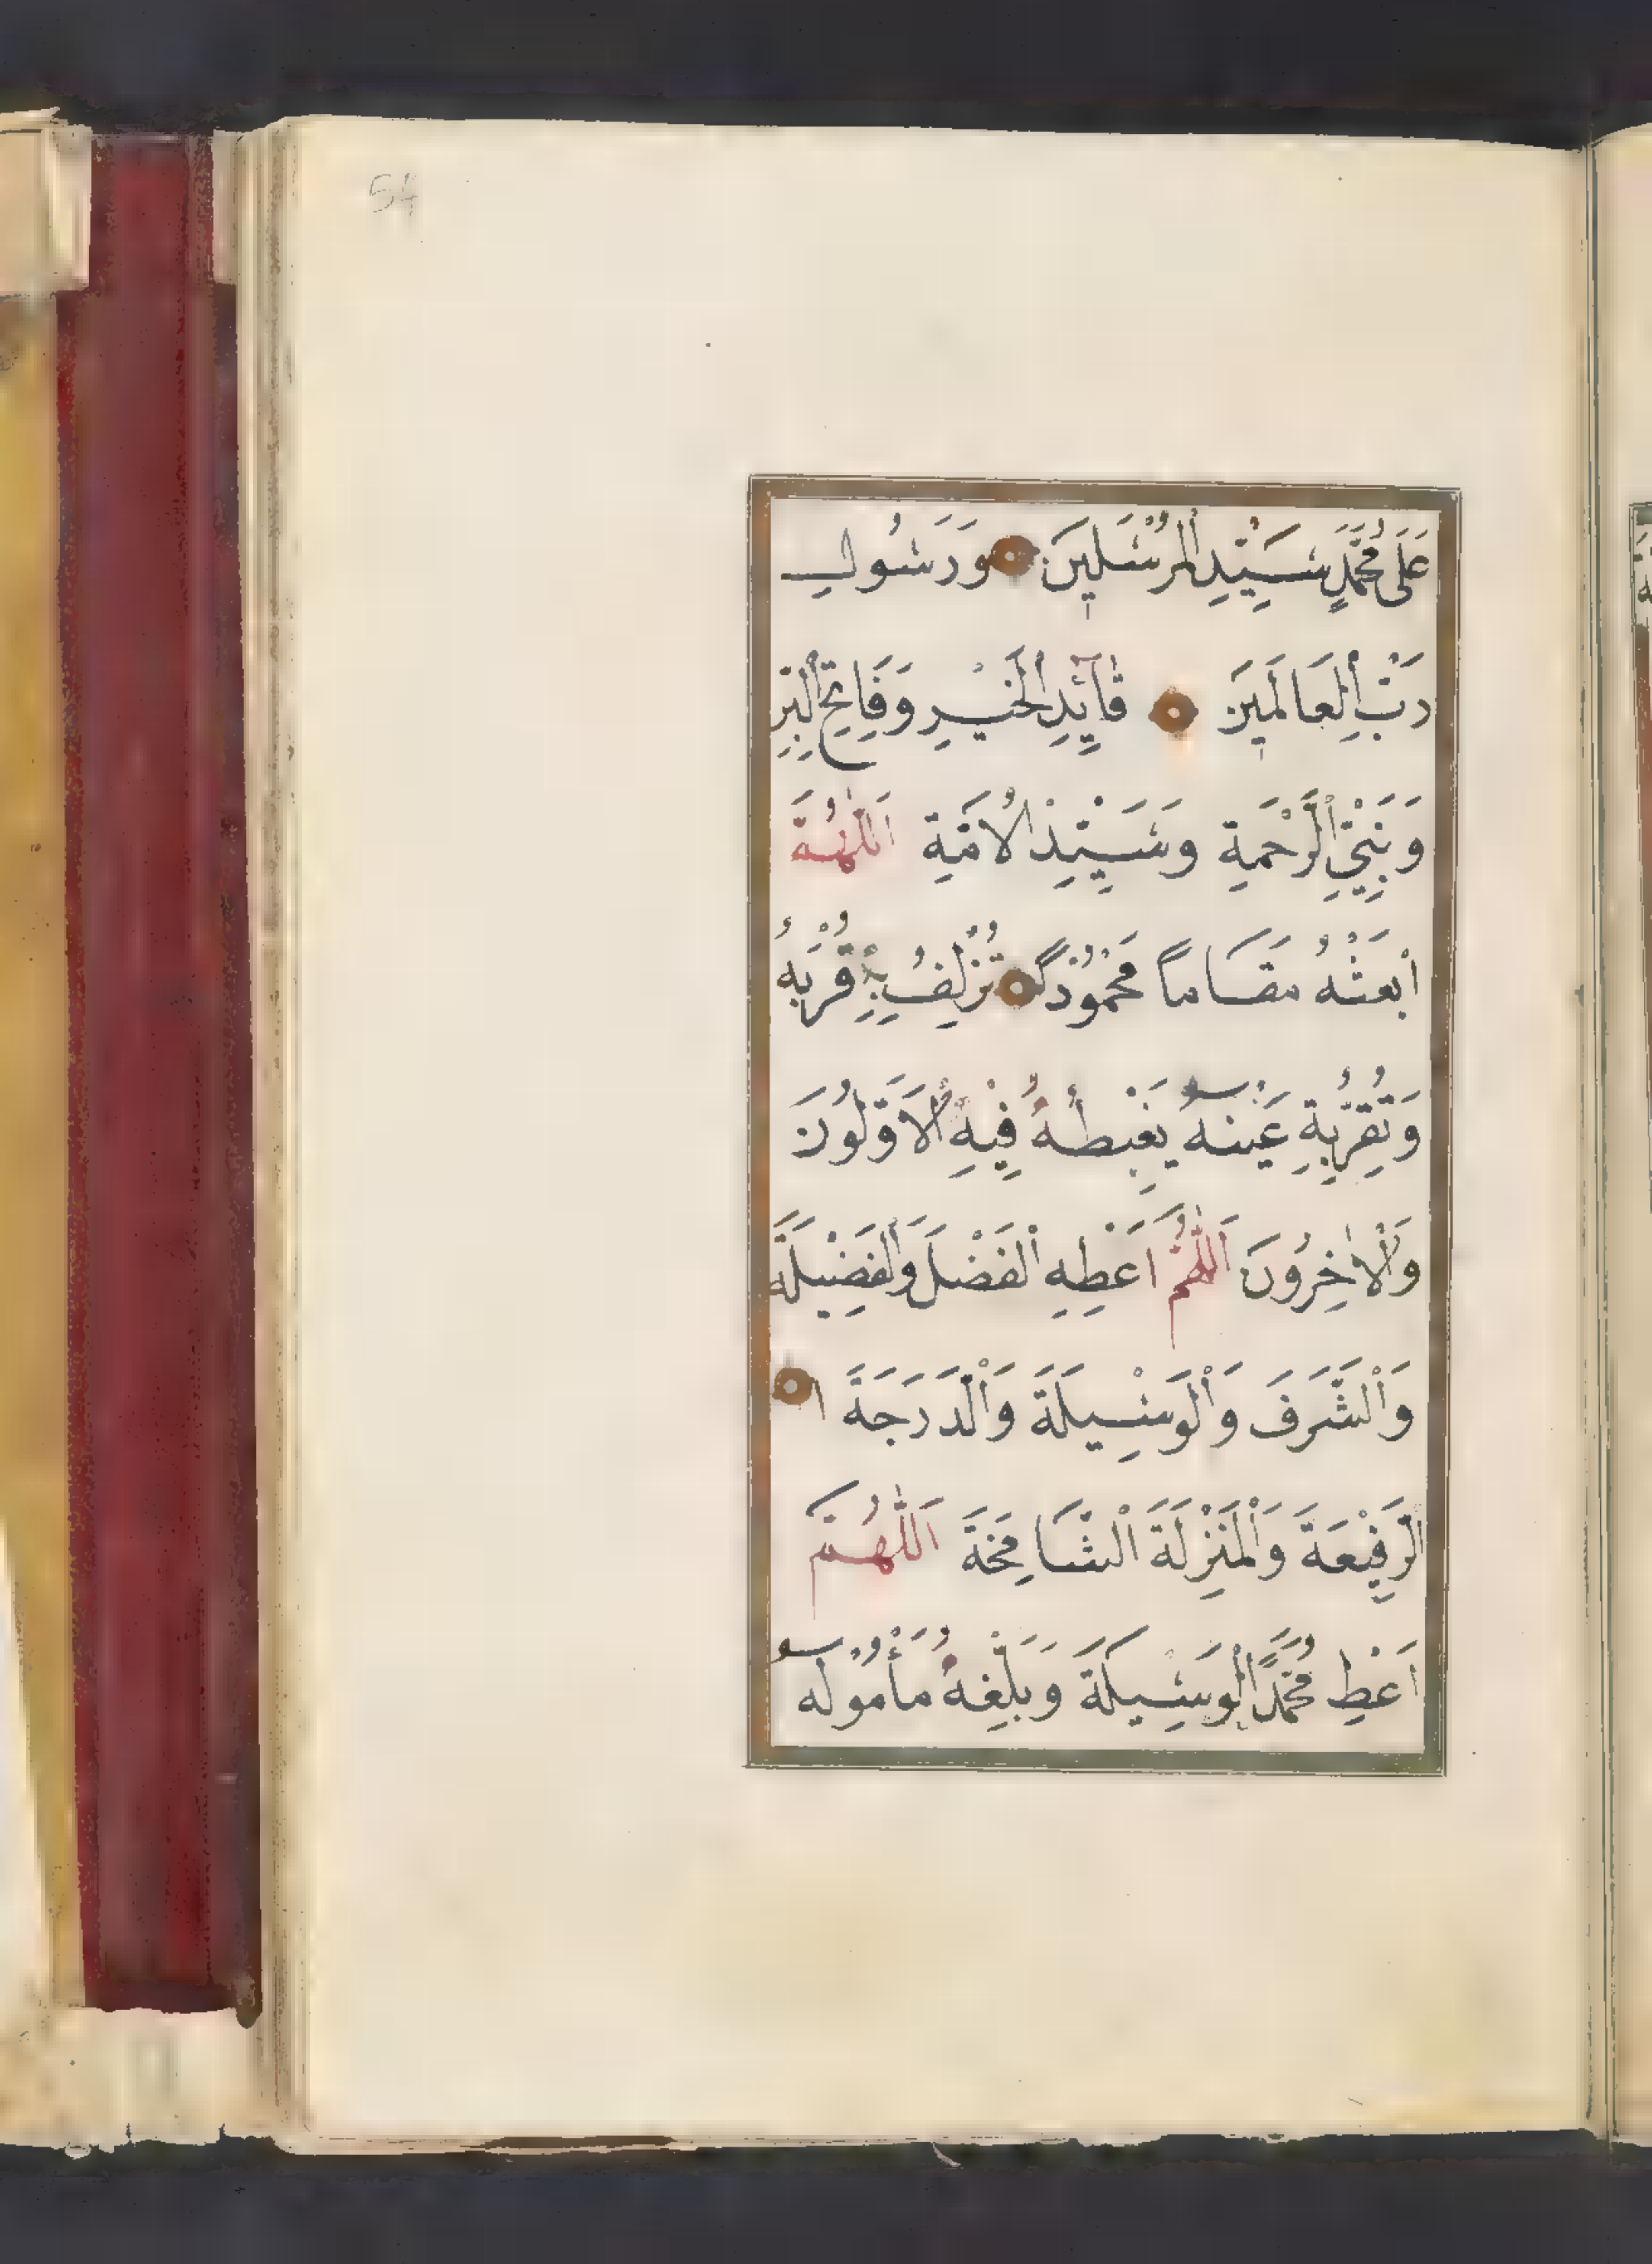 54
عَلَى مُحَمَّدٍ سَيِّدِ الْمُرْسَلِينَ وَرَسُولِ
رَبِّ الْعَالَمِينَ قَآئِدِ الْخَيْرِ وَفَاتِحِ الْبِرِّ
وَنَبِيِّ الرَّحْمَةِ وَسَيِّدِ الْاُمَّةِ اَللّٰهُمَّ
اْبعَثْهُ مَقَاماً مَحْمُودًا تُزْلِفُ بِهِ قُرْبَهُ
وَتُقِرُّ بِهِ عَيْنَهُ يَغْبِطُهُ فِيْهِ الْاَوَّلُونَ
وَالْاٰخِرُونَ اَللّٰهُمَّ اَعْطِهِ الْفَضْلَ وَالْفَضِيْلَةَ
وَالْشَّرَفَ وَالْوَسِيْلَةَ وَالْدَرَجَةَ ا
لرَّفِيْعَةَ وَالْمَنْزِلَةَ الْشَّامِخَةَ اَللّٰهُمَّ
اَعْطِ مُحَمَّدًا الْوَسِيلَةَ وَبَلِّغْهُ مَأْمُوْلَهُ